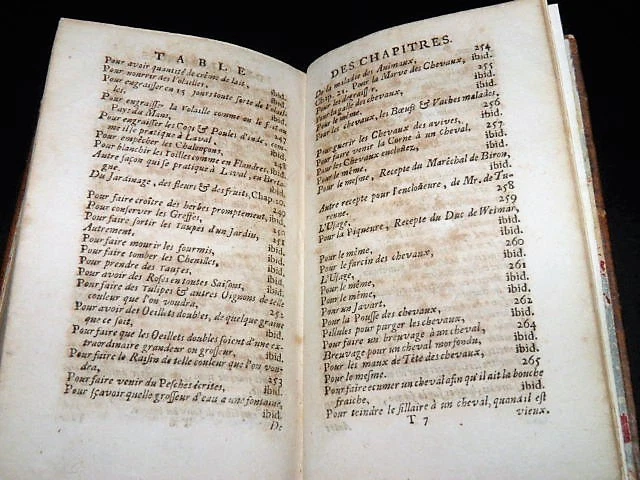 TABLE
Pour avoir quantité de crême de lait, ibid.
Pour nourrir des Volailles. ibid.
Pour engraisser en 15 jours toute sorte de Volail-
les. ibid.
Pour engraisser la Volaille comme on le fait au
Pays du Mans, ibid.
Pour engraisser les Coqs & Poules d'Inde, com-
me il se pratique à Laval 247
Pour empêcher les Chalençons, ibid.
Pour blanchir les Toilles comme en Flandres, ibid.
Autre façon qui se pratique à Laval, en Breta-
gne. ibid.
Du Jardinage, des fleurs & des fruits, Chap. 20.
249
Pour faire croître des herbes promptement, ibid.
Pour conserver les Greffes, 250
Pour faire sortir les taupes d'un Jardin, ibid.
Autrement, 251
Pour faire mourir les fourmis, ibid.
Pour faire tomber les Chenilles, ibid.
Pour prendre des taupes, ibid.
Pour avoir des Roses en toutes Saisons, ibid.
Pour faire des Tulipes & autres Oignons de telle
couleur que l'on voudra, 252
Pour avoir des Oeillets doubles, de quelque graine
que ce soit, ibid.
Pour faire que les Oeillets doubles soient d'une ex-
traordinaire grandeur ou grosseur, ibid.
Pour faire le Raisin de telle couleur que l'on vou-
dra, 253
Pour faire venir du Pesches écrites, ibid.
Pour sçavoir quelle grosseur d'eau a une fontaine,
ibid.
De
DES CHAPITRES.
De la maladie des Animaux, 254
Chap. 21. Pour la Morve des Chevaux, 255
ibid.
Pour la galle des chevaux, ibid.
Pour le même. ibid.
Pour les chevaux, les Bœufs & Vaches malades.
256
Pour guerir les Chevaux des avives, ibid.
Pour faire venir la Corne à un cheval. 257
Pour les Chevaux enclouëz, ibid.
Pour le même. ibid.
Pour le mesme, Recepte du Maréchal de Biron,
ibid.
Autre recepte pour l'encloüeure, de Mr. de Tu-
renne. 258
L'Usage, 259
Pour la Piqueure, Recepte du Duc de Weimar,
ibid.
Pour le même. 260
Pour le farcin des chevaux, ibid.
L'Usage, 261
Pour le même, ibid.
Pour le même, ibid.
Pour un Javart, 262
Pour la Pousse des chevaux, ibid.
Pillules pour purger les chevaux,
Pour faire un breuvage à un cheval, 264
Breuvage pour un cheval morfondu, ibid.
Pour les maux de Tête des chevaux, ibid.
Pour le mesme. 265
Pour faire écumer un cheval afin qu'il ait la bouche
fraiche, ibid.
Pour teindre le sillaire à un cheval, quand il est
T 7 vieux.